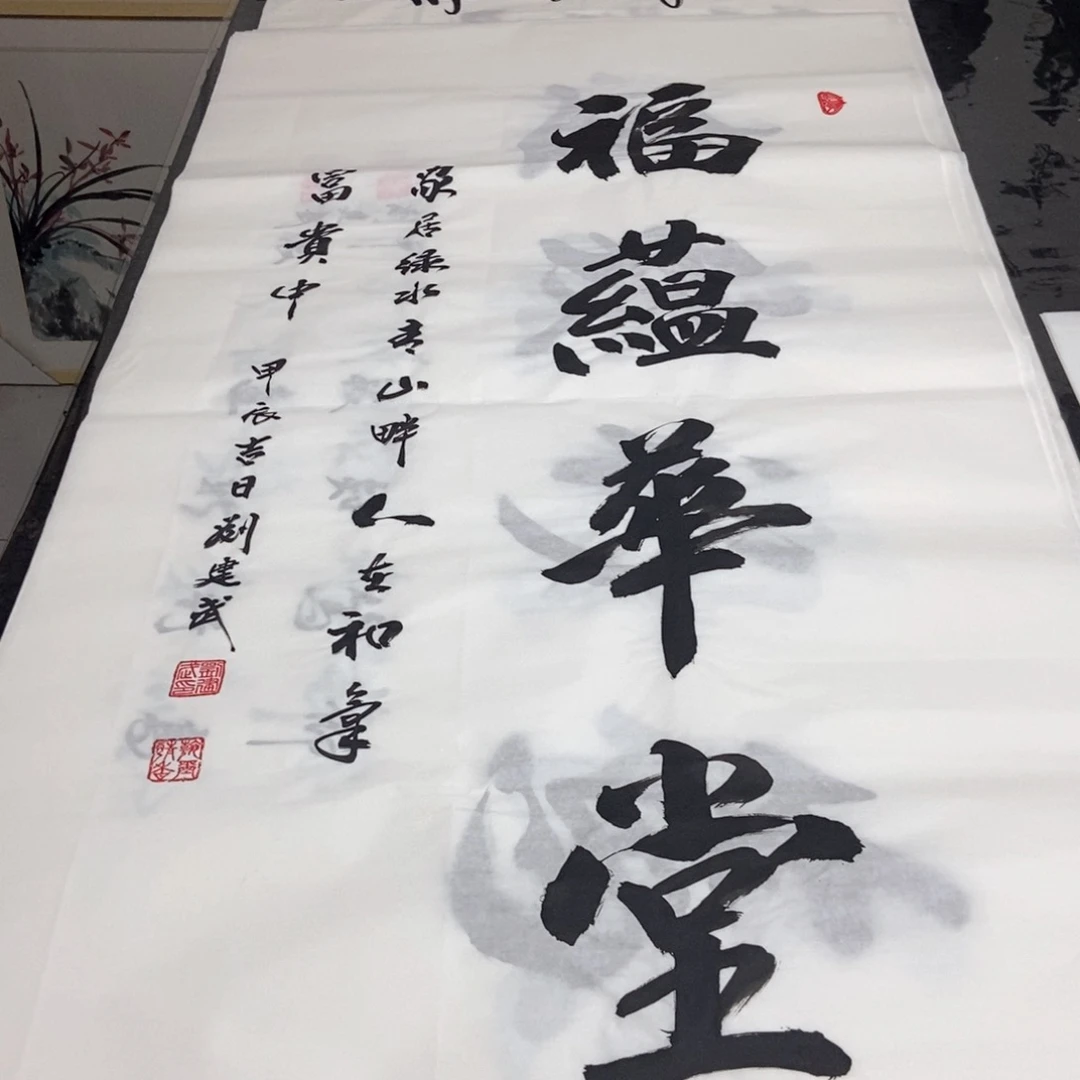 福蘊華堂
家居绿水青山畔人在和氣
富貴中 甲辰吉日劉建武